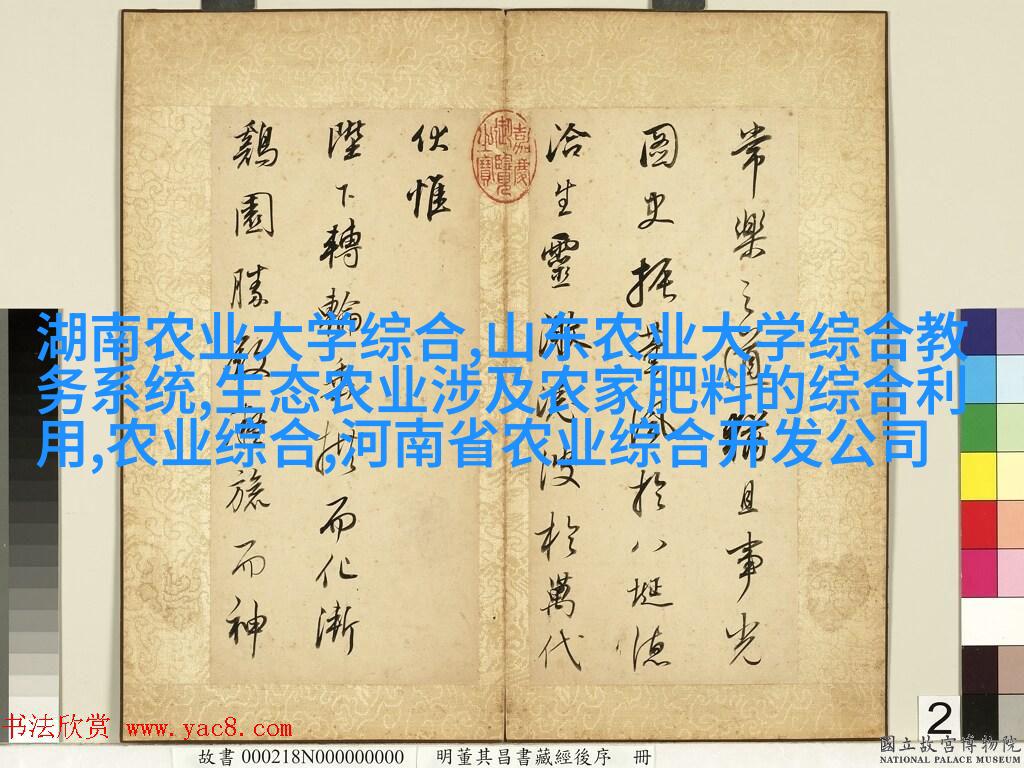 常樂之道猶且事光
圖史振薰風於八埏德
洽生靈激堯波於萬代
伏惟
陛下轉輪垂拱而化漸
鷄園勝殿凝旒而神
嘉慶御覽之寶
湖南农业大学综合,山东农业大学综合教
务系统,生态农业涉及农家肥料的综合利
用,农业综合,河南省农业综合开发公司
2
书法欣赏 www.yac8.com
故書 000218N000000000 明董其昌書藏經後序 冊
國立故宮博物院
NATIONAL PALACE MUSEUM